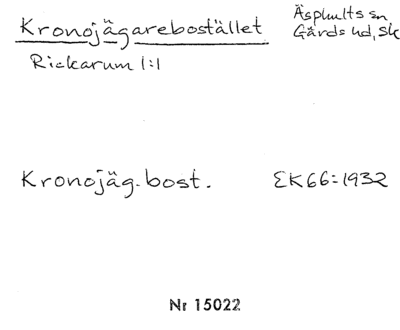 Kronojägarebostället
Äsphults sn
Gärds hd, Sk
Rickarum 1:1
Kronojäg. bost. EK66:1932
Nr 15022